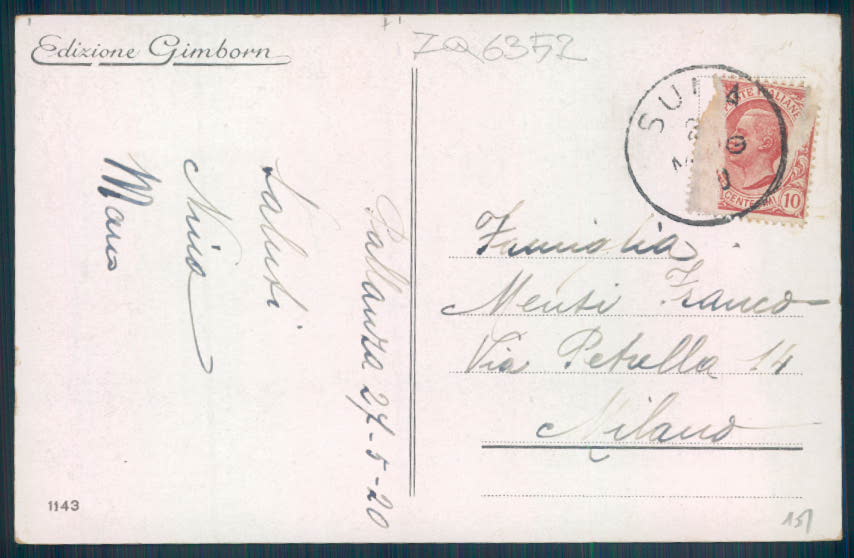 Edizione Gimborn
ZQ6352
SUNA
POSTE ITALIANE
CENTESIMI 10
Pallanza 27-5-20
Saluti
Nino
Famiglia
Menti Franco
Via Petrella 14
Milano
1143